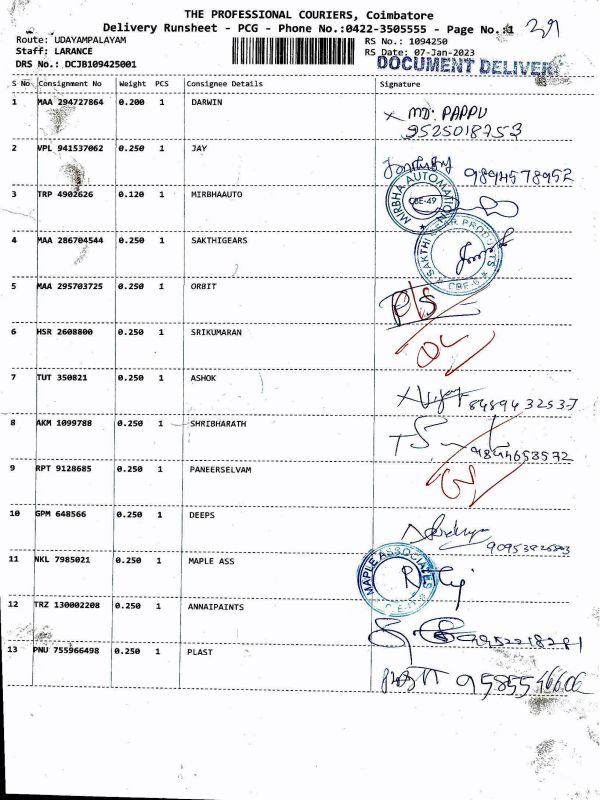 THE PROFESSIONAL COURIERS, Coimbatore
Delivery Runsheet - PCG - Phone No.:0422-3505555 - Page No.:1 39
Route: UDAYAMPALAYAM
RS No.: 1094250
Staff: LARANCE
RS Date: 07-Jan-2023
DRS No.: DCJB109425001
DOCUMENT DELIVERY
S No Consignment No Weight PCS Consignee Details Signature
1 MAA 294727864 0.200 1 DARWIN MD. PAPPU
9525018753
2 VPL 941537062 0.250 1 JAY 9894578952
3 TRP 4902626 0.120 1 MIRBHAAUTO MIRBHA AUTOMATION CBE-49
4 MAA 286704544 0.250 1 SAKTHIGEARS SAKTHI GEAR PRODUCTS CBE-6
5 MAA 295703725 0.250 1 ORBIT
6 HSR 2608800 0.250 1 SRIKUMARAN
7 TUT 350821 0.250 1 ASHOK 8489432537
8 AKM 1099788 0.250 1 SHRIBHARATH 9844653572
9 RPT 9128685 0.250 1 PANEERSELVAM
10 GPM 648566 0.250 1 DEEPS
11 NKL 7985021 0.250 1 MAPLE ASS MAPLE ASSOCIATES
12 TRZ 130002208 0.250 1 ANNAIPAINTS
13 PNU 755966498 0.250 1 PLAST